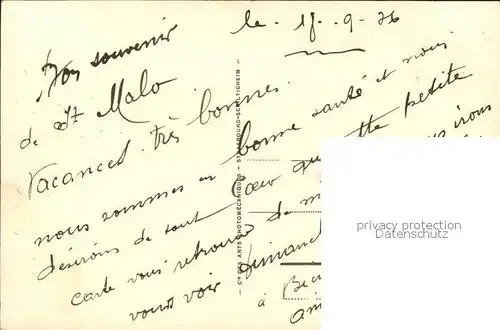 le 18-9-36
Bon souvenir
de St Malo
Vacances très bonnes.
nous sommes en bonne santé et nous
désirons de tout Cœur que cette petite
carte vous retrouve de m
vous irons
vous voir dimanch
à
Cie DES ARTS PHOTOMÉCANIQUES - STRASBOURG-SCHILTIGHEIM -
privacy protection
Datenschutz